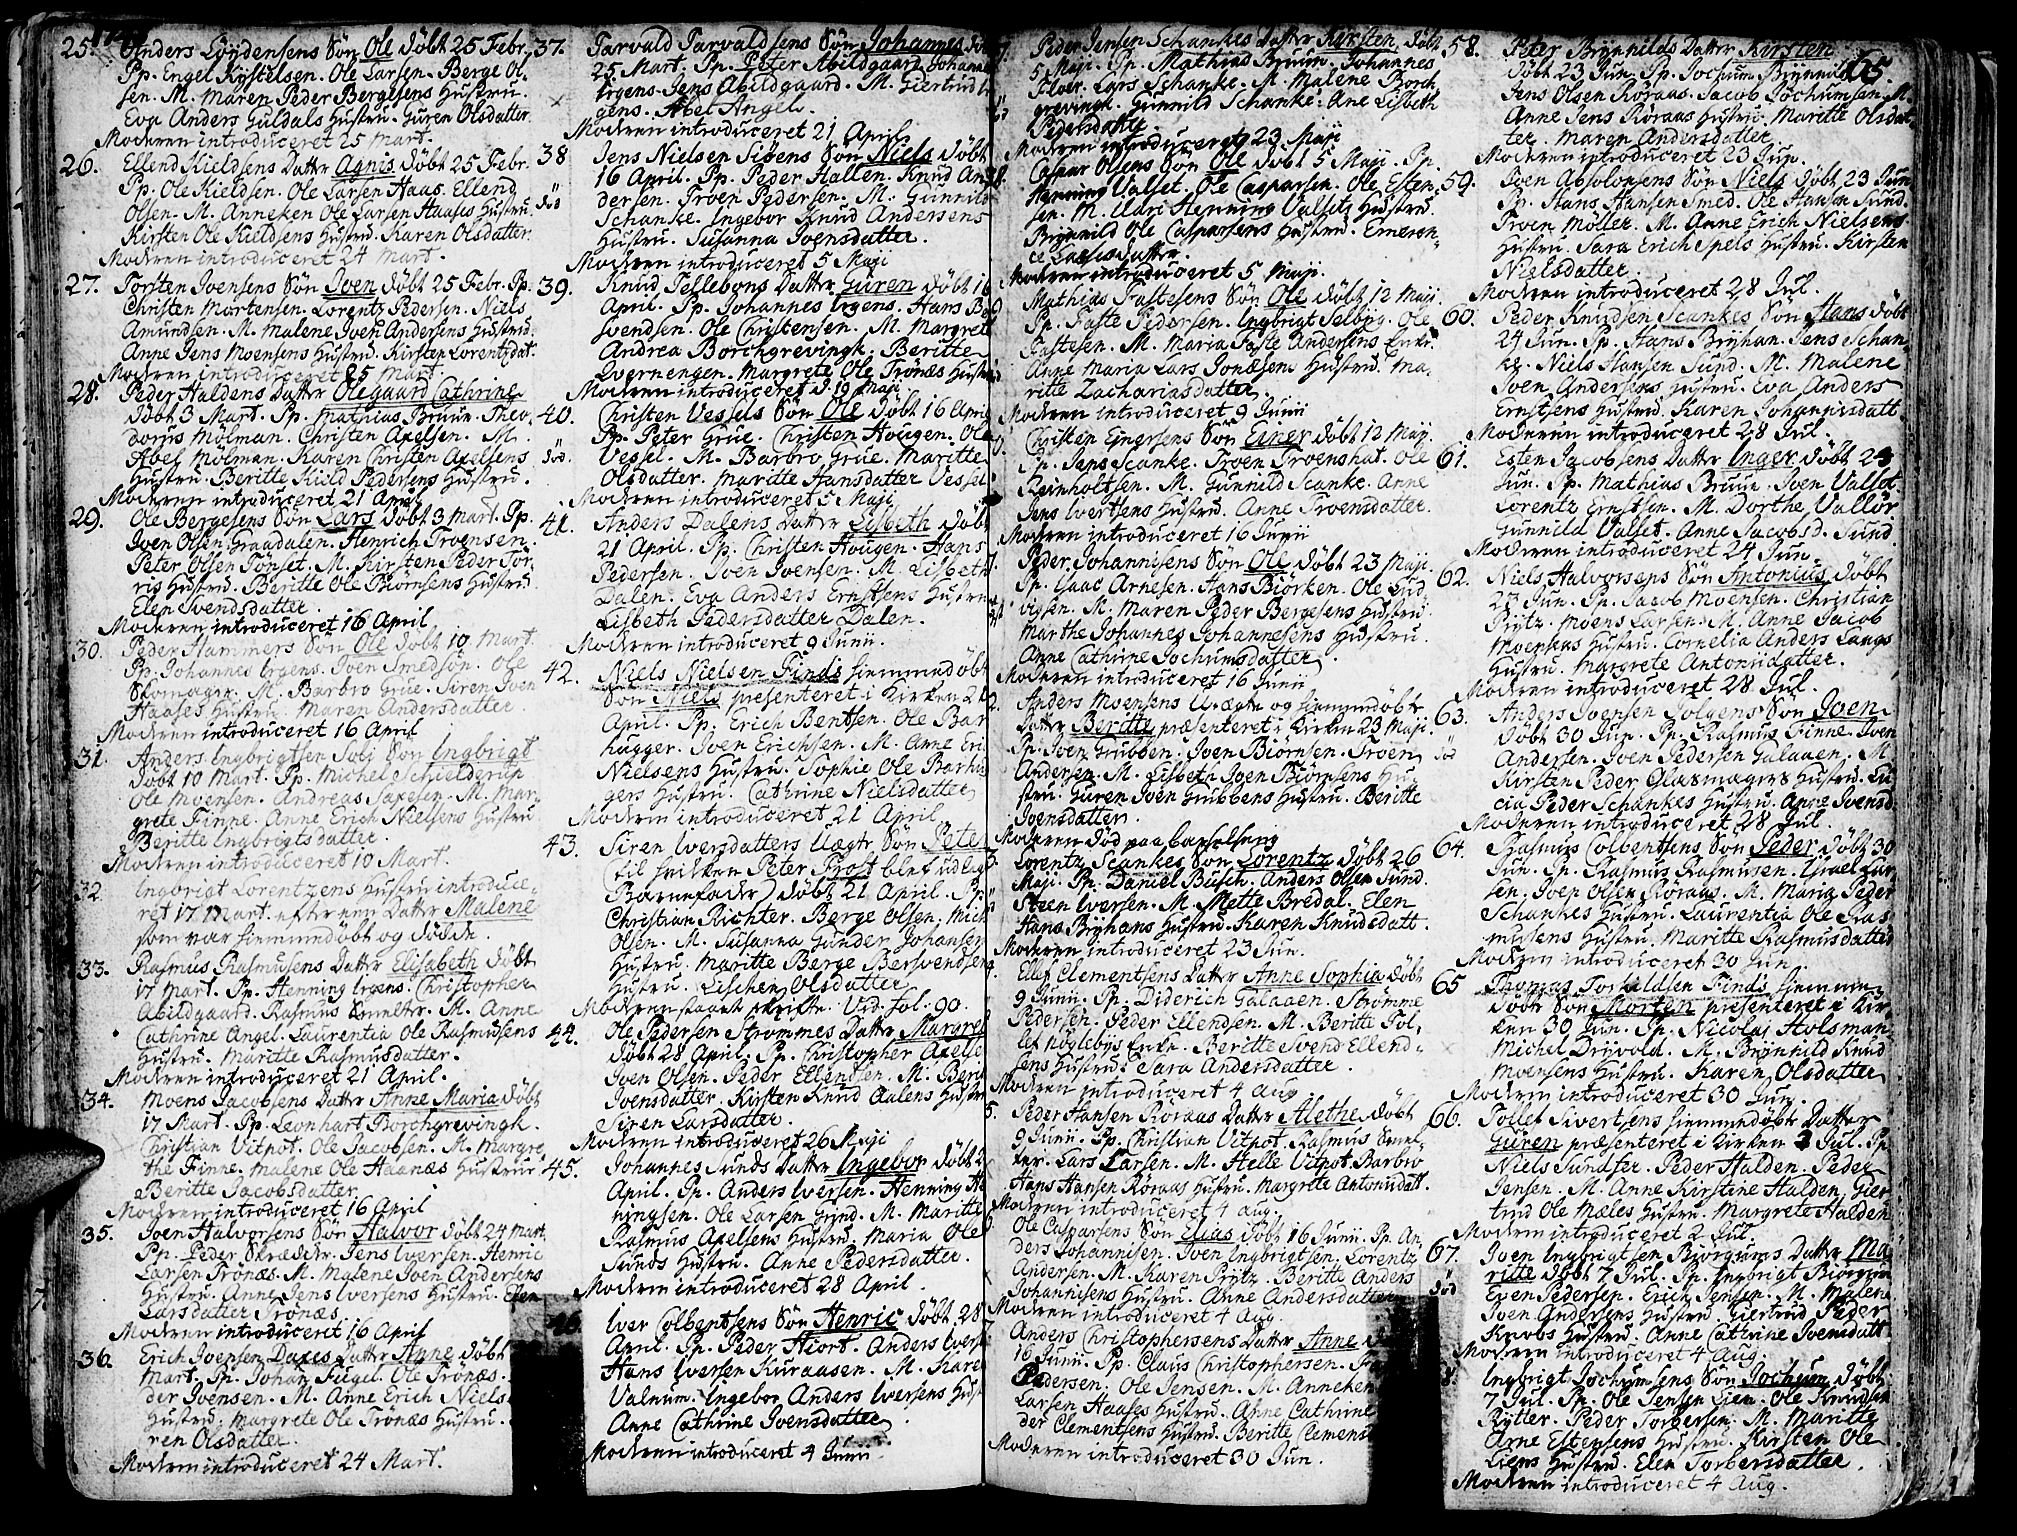 25. Anders Löydensens Sön Ole döbt 25 Febr.
Pp. Engel Kystelsen. Ole Larsen. Berge Ol-
sen. M. Maren Peder Bergesens Hustru.
Eva Anders Guldals Hustru. Guren Olsdatter.
Moderen introduceret 25 Mart.
26. Ellend Kieldsens Datter Agnis döbt 25 Febr.
Pp. Ole Kieldsen. Ole Larsen Haas. Ellend
Olsen. M. Anneken Ole Larsen Haases Hustru.
Kirsten Ole Kieldsens Hustru. Karen Olsdatter.
Moderen introduceret 24 Mart.
27. Torsten Joensens Sön Joen döbt 25 Febr. Pp.
Christen Mortensen. Lorentz Pedersen. Niels
Amundsen. M. Malene Joen Andersens Hustru.
Anne Jens Moensens Hustru. Kirsten Lorentzdat.
Moderen introduceret 25 Mart.
28. Peder Haldens Datter Olegaard Cathrine
döbt 3 Mart. Pp. Mathias Bruun. Theo-
dorus Mölman. Christen Axelsen. M.
Abel Mölman. Karen Christen Axelsens
Hustru. Beritte Kield Pedersens Hustru.
Moderen introduceret 21 April
29. Ole Bergesens Sön Lars döbt 3 Mart. Pp.
Joen Olsen Graadalen. Henrich Troensen.
Peter Olsen Tönset. M. Kirsten Peder Tör-
ris Hustru. Beritte Ole Biörnsens Hustru
Elen Svendsdatter.
Moderen introduceret 16 April
30. Peder Hammers Sön Ole döbt 10 Mart
Pp. Johannes Irgens. Joen Smedsön. Ole
Skomager. M. Barbro Grue. Siren Joen
Haases Hustru. Maren Andersdatter.
Moderen introduceret 16 April
31. Anders Ingbrigtsen Soli Sön Ingbrigt
döbt 10 Mart. Pp. Michel Schielderup
Ole Moensen. Andreas Saxesen. M. Mar-
grete Finne. Anne Erich Nielsens Hustru
Beritte Ingbrigtsdatter.
Moderen introduceret 10 Mart.
32 Ingbrigt Lorentzens Hustru introduce-
ret 17 Mart. efter een Datter Malene
som var hiemmedöbt og döde.
33. Rasmus Rasmusens Datter Elisabeth döbt
17 Mart. Pp. Henning Irgens. Christopher
Abildgaard. Rasmus M. Anne
Cathrine Angel. Laurentia Ole Rasmusens
Hustru. Maritte Rasmusdatter.
Moderen introduceret 21 April.
34. Moens Jacobsens Datter Anne Maria döbt
17 Mart. Pp. Leonhart Borchgrevingk.
Christian Vitpot. Ole Jacobsen. M. Margre-
the Finne. Malene Ole Haanæs Hustrue
Beritte Jacobsdatter
Moderen introduceret 16 April
35. Joen Halvorsens Sön Halvor döbt 24 Mart.
Pp. Peder Skrædder. Jens Iversen. Henric
Larsen Trönæs. M. Malene Joen Andersens
Hustru. Anne Jens Iversens Hustru. Elen
Larsdatter Trönæs
Moderen introduceret 16 April
36. Erich Joensen Daxes Datter Anne döbt
Mart. Pp. Johan Fiegel. Ole Trönæs.
der Joensen. M. Anne Erich Niels
Hustru. Margrete Ole Trönæs Hustru.
ren Olsdatter.
Moderen introduceret 24 Mart.
37. Tarvald Tarvaldsens Sön Johannes döbt
25 Mart. Pp. Peter Abildgaard. Johannes
Irgens. Jens Abildgaard. M. Giertrud Ir
gens. Abel Angel.
Moderen introduceret 21 April
38 Jens Nielsen Siöens Sön Niels döbt
16 April. Pp. Peder Hallen. Knud An
död dersen. Troen Pedersen. M. Gunnild
Schanke. Ingebor Knud Andersens
Hustru. Susanna Joensdatter.
Moderen introduceret 5 Maji
39. Knud Tellebons Datter Guren döbt 16
April. Pp. Johannes Irgens. Hans Be
svendsen. Ole Christensen. M. Margrete
Andrea Borchgrevingk. Beritte
Qvernengen. Margrete Ole Trönæs Hustru
Moderen introduceret d. 19 Maji
40. Christen Vessels Sön Ole döbt 16 April
Pp. Peter Grue. Christen Hougen. Ole
död. Vessel. M. Barbro Grue. Maritte
Olsdatter. Maritte Hansdatter Vessel
Moderen introduceret 5 Maji
41. Anders Dalens Datter Lisbeth döbt
21 April. Pp. Christen Hougen. Hans
Pedersen. Joen Joensen. M. Lisbeth
Dalen. Eva Anders Ernstsens Hustru
Lisbeth Pedersdatter Dalen.
Moderen introduceret 9 Junii.
42. Niels Nielsen Finds hiemmedöbt
Sön Niels præsenteret i Kirken 21
April. Pp. Erich Bentsen. Ole Bar
hugger. Joen Erichsen. M. Anne Eri
Nielsens Hustru. Sophie Ole Barhu
gers Hustru. Cathrine Nielsdatter
Moderen introduceret 21 April.
43. Siren Iversdatters Uægte Sön Peter
(til hvilken Peter Prost blef udlagt
Barnefader) döbt 21 April. Pp.
Christian Richter. Berge Olsen. Mich
Olsen. M. Susanna Gunder Johansens
Hustru. Maritte Berge Bersvendsen
Hustru. Lischen Olsdatter
Moderen staaet skrifte. Vid. fol. 90.
44. Ole Pedersen Strömmes Datter Margret
döbt 28 April. Pp. Christopher Axelse
Joen Olsen. Peder Ellendsen. M. Berit
Joensdatter. Kirsten Knud Aalens Hustru
Siren Larsdatter.
Moderen introduceret 26 Maji
45. Johannes Sunds Datter Ingebor döbt 2
April. Pp. Anders Iversen. Henning He
ningsen. Ole Larsen Grind. M. Maritte
Rasmus Axelsens Hustru. Maria Ole
Sunds Hustru. Anne Pedersdatter.
Moderen introduceret 28 April.
46. Iver Colbentsens Sön Henric döbt 28
April. Pp. Peder Hiort. Anders Ivers
Hans Iversen Kuraasen. M. Kare
Valnum. Ingebor Anders Iversens Hust
Anne Cathrine Joensdatter.
Moderen introduceret 4 Junii
Peder Jensen Schankes Datter Kirsten döbt
5 Maji. Pp. Mathias Bruun. Johannes
Floer. Lars Schanke. M. Malene Borch
grevingk. Gunnild Schanke. Ane Lisbeth
Pedersdatter
Moderen introduceret 23 Maji
Casper Olsens Sön Ole döbt 5 Maji. Pp.
Henning Valset. Ole Caspersen. Ole Esten-
sen. M. Mari Henning Valsets Hustru.
Brynnild Ole Caspersens Hustru. Emeren-
ce Larsdatter.
Moderen introduceret 5 Maji.
Mathias Fastesens Sön Ole döbt 12 Maji.
Pp. Faste Pedersen. Ingbrigt Selbyg. Ole
Fastesen. M. Maria Faste Andersens Enke.
Anne Maria Lars Jonæsens Hustru. Ma-
ritte Zachariasdatter
Moderen introduceret 9 Junii
Christen Einersens Sön Einer döbt 12 Maji.
Pp. Jens Scanke. Troen Troenshat. Ole
Reinholtsen. M. Gunnild Scanke. Anne
Jens Ivertsens Hustru. Anne Troensdatter.
Moderen introduceret 16 Junii
Peder Johannisens Sön Ole döbt 23 Maji.
Pp. Isaac Arnesen. Hans Biörken. Ole Lud-
vigsen. M. Maren Peder Bergesens Hustru.
Marthe Johannes Johannesens Hustru.
Anne Cathrine Jochumsdatter.
Moderen introduceret 16 Junii
Anders Moensens Uægte og hiemmedöbte
Datter Beritte præsenteret i Kirken 23 Maji.
Pp. Joen Grubben. Joen Biörnsen. Troen
Andersen. M. Lisbeth Joen Biörnsens Hu-
stru. Guren Joen Grubbens Hustru. Beritte
Joensdatter.
Moderen död paa barselseng
Lorentz Scankes Sön Lorentz döbt 26
Maji. Pp. Daniel Busch. Anders Olsen Sund.
Steen Iversen. M. Mette Bredal. Elen
Hans Bryhans Hustru. Karen Knudsdatt.
Moderen introduceret 23 Jun.
Ellef Clementsens Datter Anne Sophia döbt
9 Junii. Pp. Diderich Galaaen. Strömme
Pedersen. Peder Ellendsen. M. Beritte Tol-
lef Höglebys Enke. Beritte Svend Ellend-
sens Hustru. Sara Andersdatter.
Moderen introduceret 4 Aug
5. Peder Hansen Röraas Datter Alethe döbt
9 Junii. Pp. Christian Vitpot. Rasmus
Lars Larsen. M. Helle Vitpot. Barbro
Hans Hansen Röraas Hustru. Margrete Antonisdatt.
Moderen introduceret 4 Aug.
Ole Caspersens Sön Elias döbt 16 Junii. Pp. An-
ders Johannisen. Joen Ingbrigtsen. Lorentz
Andersen. M. Karen Pritz. Beritte Anders
Johannisens Hustru. Anne Andersdatter
Moderen introduceret 4 Aug.
Anders Christophersens Datter Anne
16 Junii. Pp. Claus Christophersen.
Pedersen. Ole Jensen. M. Anneken
Larsen Haases Hustru. Anne Cathrine
der Clementsens Hustru. Beritte Clemens
Moderen introduceret 30 Jun.
65.
58. Peter Brynnilds Datter Kirsten
döbt 23 Jun. Pp. Jochum Brynnild
Jens Olsen Röraas. Jacob Jochumsen. M.
Anne Jens Röraas Hustru. Maritte Olsdat-
ter. Maren Andersdatter
Moderen introduceret 23 Jun.
59. Joen Absolonsens Sön Niels döbt 23 Jun
Pp. Hans Hansen Smed. Ole Hansen Sund.
Troen Möller. M. Anne Erich Nielsens
Hustru. Sara Erich Spels Hustru. Kirsten
Nielsdatter.
Moderen introduceret 28 Jul.
60. Peder Knudsen Scankes Sön Hans döbt
24 Jun. Pp. Hans Bryhan. Jens Schan-
ke. Niels Hansen Sund. M. Malene
Joen Andersens Hustru. Eva Anders
Ernstsens Hustru. Karen Johannisdatt
Moderen introduceret 28 Jul.
61. Esten Jacobsens Datter Inger döbt 24
Jun. Pp. Mathias Bruun. Joen Valset.
Lorentz Ernstsen. M. Dorthe Vallör
Gunnild Valset. Anne Jacobsd. Sund.
Moderen introduceret 24 Jun.
62. Niels Halvorsens Sön Antonius döbt
23 Jun. Pp. Jacob Moensen. Christian
Pritz. Moens Larsen. M. Anne Jacob
Moensens Hustru. Cornelia Anders Langs
Hustru. Margrete Antonisdatter.
Moderen introduceret 28 Jul.
63. Anders Joensen Solgens Sön Joen
döbt 30 Jun. Pp. Rasmus Finne. Joen
Andersen. Joen Pedersen Galaaen. M.
Kirsten Peder Glasmagers Hustru. Lu-
cia Peder Schankes Hustru. Anne Joensd.
Moderen introduceret 28 Jul.
64. Rasmus Colbentsens Sön Peder döbt 30
Jun. Pp. Rasmus Rasmusen. Israel Lar
sen. Joen Olsen Röraas. M. Maria Peder
Schankes Hustru. Laurentia Ole Ras
musens Hustru. Maritte Rasmusdatter
Moderen introduceret 30 Jun.
65 Thomas Torkeldsen Finds hiemme-
döbte Sön Morten præsenteret i Kir-
ken 30 Jun. Pp. Nicolai Holsman
Michel Dryvold. M. Brynhild Knud
Moensens Hustru. Karen Olsdatter
Moderen introduceret 30 Jun.
66. Tollef Sivertsens hiemmedöbte Datter
Guren præsenteret i Kirken 2 Jul. Pp.
Niels Sundfer. Peder Halden. Peder
Jensen. M. Anne Kirstine Halden. Gier
trud Ole Mæles Hustru. Margrete Halden
Moderen introduceret 2 Jul.
67. Joen Ingbrigtsen Biorgums Datter Ma-
död ritte döbt 7 Jul. Pp. Ingbrigt Biorgum
Even Pedersen. Erich Jensen. M. Malene
Joen Andersens Hustru. Giertrud Peder
Knubs Hustru. Anne Cathrine Joensdatt
Moderen introduceret 4 Aug.
8. Ingbrigt Jochumsens Sön Jochum döbt
7 Jul. Pp. Ole Jensen Lien. Ole Knudsen
Rytter. Peder Torbersen. M. Maritte
Arne Estensens Hustru. Kirsten Ole
Liens Hustru. Elen Torbersdatter.
Moderen introduceret 4 Aug.